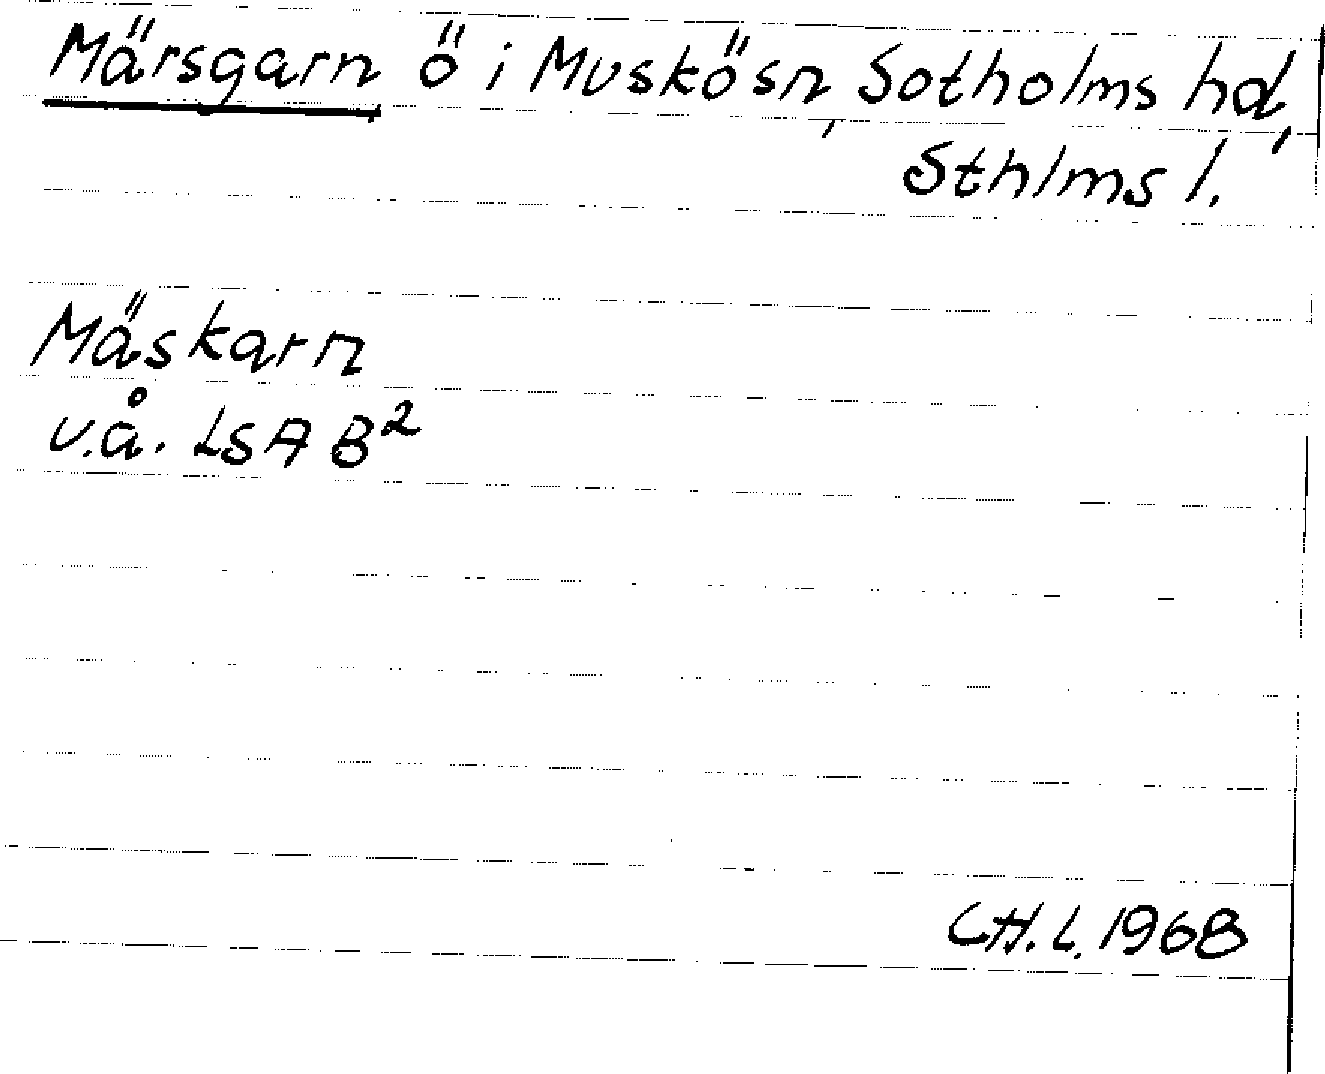 Märsgarn ö i Muskö sn, Sotholms hd,
Sthlms l.
Mäskarn
u.å. LSA B²
C.H.L. 1968